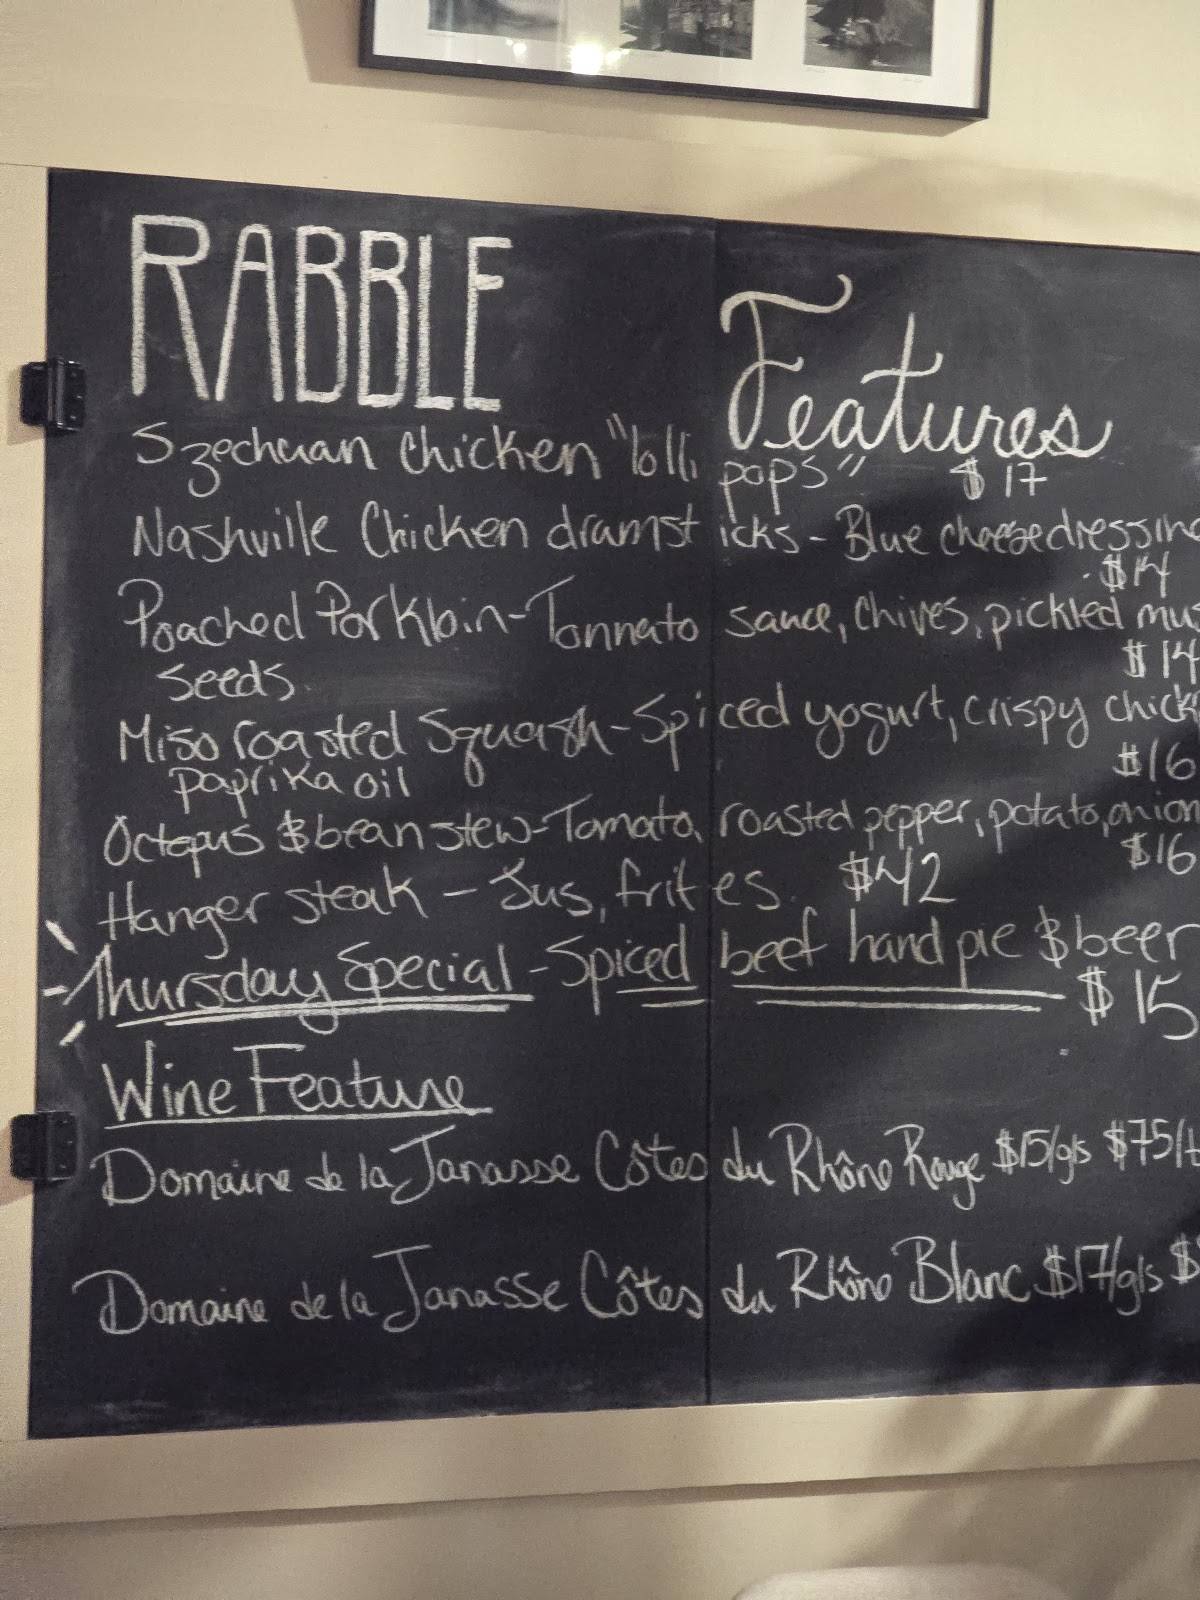 RABBLE
Features
Szechuan Chicken "lolli pops" $17
Nashville Chicken drumsticks - Blue cheese dressing
$14
Poached Pork loin - Tonnato sauce, chives, pickled
$14
seeds.
Miso roasted Squash - Spiced yogurt, crispy
$16
paprika oil
Octopus & bean stew - Tomato, roasted pepper, potato, onion
$16
Hanger steak - Jus, frites. $42
Thursday Special - Spiced beef hand pie & beer
$15
Wine Feature
Domaine de la Janasse Côtes du Rhône Rouge $15/gls $75/
Domaine de la Janasse Côtes du Rhône Blanc $17/gls $